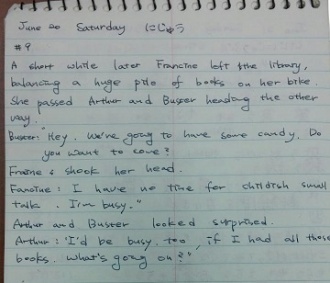 June 20 Saturday にじゅう
#9
A short while later Francine left the library,
balancing a huge pile of books on her bike.
She passed Arthur and Buster heading the other
way.
Buster: "Hey. We're going to have some candy. Do
you want to come?
shook her head.
Francine: I have no time for childish small
talk. I'm busy."
Arthur and Buster looked surprised.
Arthur: "I'd be busy, too, if I had all those
books. What's going on?"